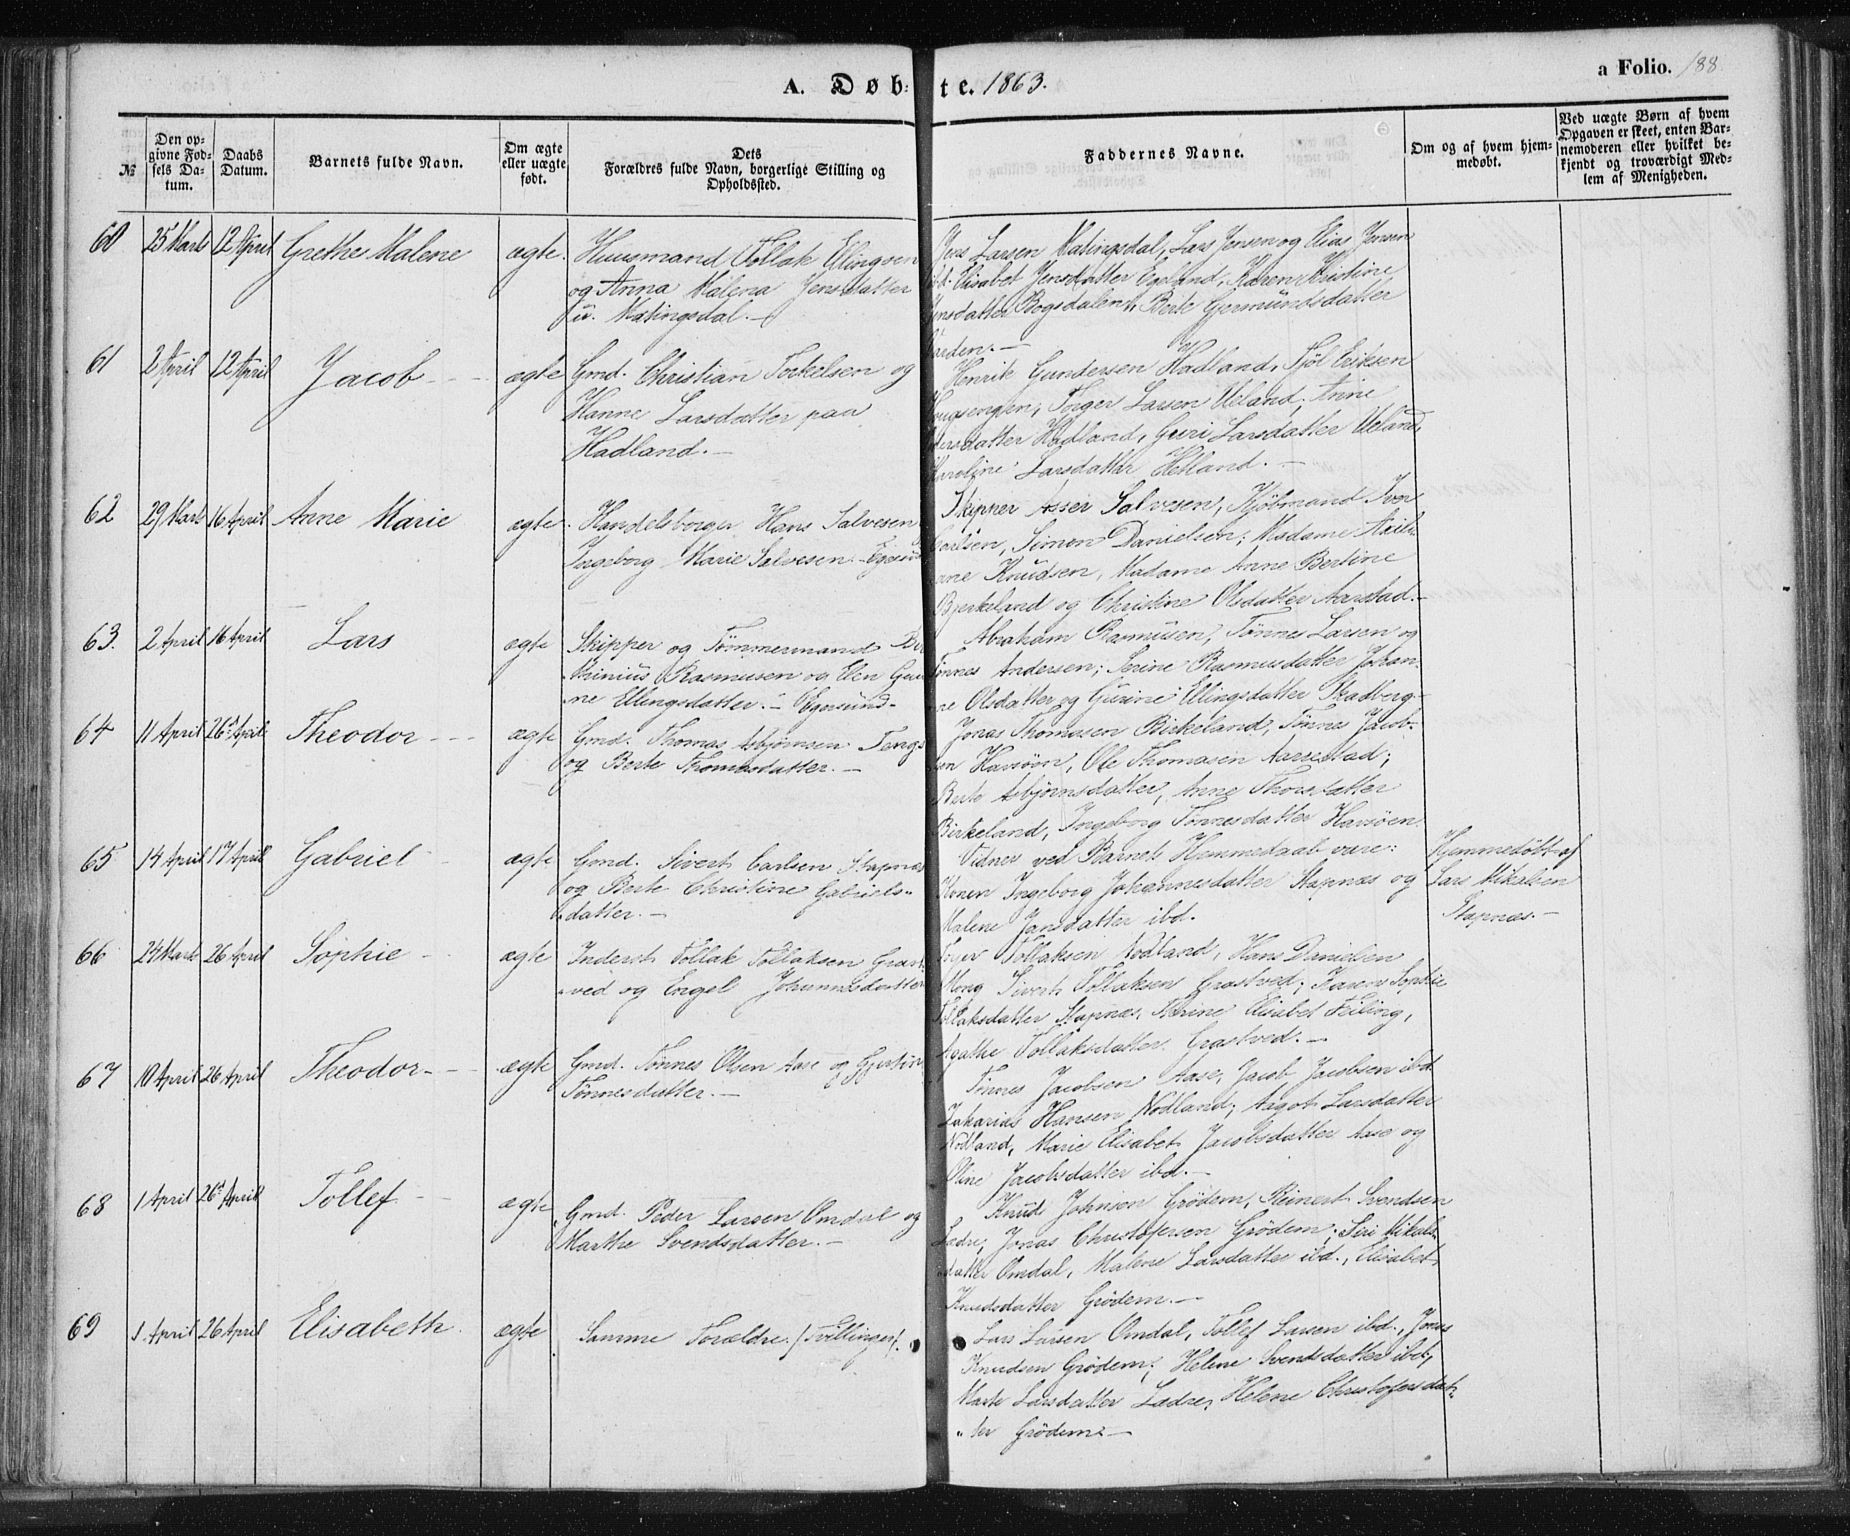 A. Døb- te. 1863.
a Folio. 188.
№
Den opgivne Fødsels Datum.
Daabs Datum.
Barnets fulde Navn.
Om ægte eller uægte født.
Dets Forældres fulde Navn, borgerlige Stilling og Opholdssted.
Faddernes Navne.
Om og af hvem hjemmedøbt.
Ved uægte Børn af hvem Opgaven er skeet, enten Barnemoderen eller hvilket bekjendt og troværdigt Medlem af Menigheden.
60 25 Marts 12 April Grethe Malene ægte. Huusmand Tollak Ellingsen
og Anna Malena Jensdatter
Matingsdal.—
Jens Larsen Matingsdal, Lars Jensen og Elias Jensen
ibd. Elisabet Jensdatter Egeland, Karen Kristine
Jensdatter Bogsdalen, Berte Gjermundsdatter
61 2 April 12 April Jacob ægte Gmd. Christian Torkelsen og
Hanne Larsdatter paa
Hadland.—
Henrik Gundersen Hadland, Sjöl Eriksen
Torger Larsen Ueland, Anne
Hadland, Guri Larsdatter Ueland,
Karoline Larsdatter Hetland.—
62 29 Marts 16 April Anne Marie ægte. Handelsborger Hans Salvesen
Ingeborg Marie Salvesen. Egersund
Skipper Asser Salvesen, Kjöbmand Iver
Carlsen, Simon Danielsen; Madame
Knudsen, Madame Anne Bertine
Bjerkeland og Christine Olsdatter Aarstad.—
63. 2 April 16 April Lars ægte Skipper og Tømmermand
Rasmusen og Elen Gu
ne Ellingsdatter.— Egersund-
Abraham Rasmusen, Tønnes Larsen og
Tönnes Andersen; Serine Rasmusdatter Johan
ne Olsdatter og Gurine Ellingsdatter Stadberg-
64 11 April 26 April Theodor ægte Gmd. Thomas Asbjørnsen Tengs
og Berte Thomasdatter.—
Jonas Thomasen Birkeland, Tönnes Jacob-
sen Havsöen, Ole Thomasen Aarrestad;
Berte Asbjørnsdatter, Anne Thorsdatter
Birkeland, Ingeborg Tönnesdatter Havsöen.
65 14 April 17 April Gabriel ægte Gmd. Sivert Carlsen Stapnæs
og Berte Christine Gabriels-
datter.—
Vidner ved Barnets Hjemmedaab vare:
Konen Ingeborg Johannesdatter Stapnæs og
Malene Jansdatter ibd.
Hjemmedöbt af
Lars Mikalsen
Stapnæs.—
66 24 Marts 26 April Sophie ægte Inderst Tollak Tollaksen Grast-
ved og Engel Johannesdatter
Torger Tollaksen Nodland, Hans Danielsen
Mong Sivert Tollaksen Grastved; Karen Sophie
Tollaksdatter Stapnæs, Elisabet Feiling,
Agathe Tollaksdatter Grastved.—
67 10 April 26 April Theodor ægte Gmd. Tönnes Olsen Aase og Gjertine
Tönnesdatter.—
Tönnes Jacobsen Aase, Jacob Jacobsen ibd
Zakarias Hansen Nodland; Aagot Larsdatter
Nodland, Marie Elisabet Jacobsdatter Aase og
Oline Jacobsdatter ibd.—
68 1 April 26 April Tollef ægte Gmd. Peder Larsen Omdal og
Marthe Svendsdatter.—
Knud Johnson Grödem, Reinert Svendsen
Ladre, Jonas Christofersen Grödem; Siri Mikals-
datter Omdal, Malene Larsdatter ibd., Elisabet
Knudsdatter Grödem.—
69 1 April 26 April Elisabeth. ægte Samme Forældre. /Tvillinger/.
Lars Larsen Omdal, Tollef Larsen ibd., Jonas
Knudsen Grödem; Helene Svendsdatter ibd,
Marte Larsdatter Ladre, Helene Christofersdat-
ter Grödem.—